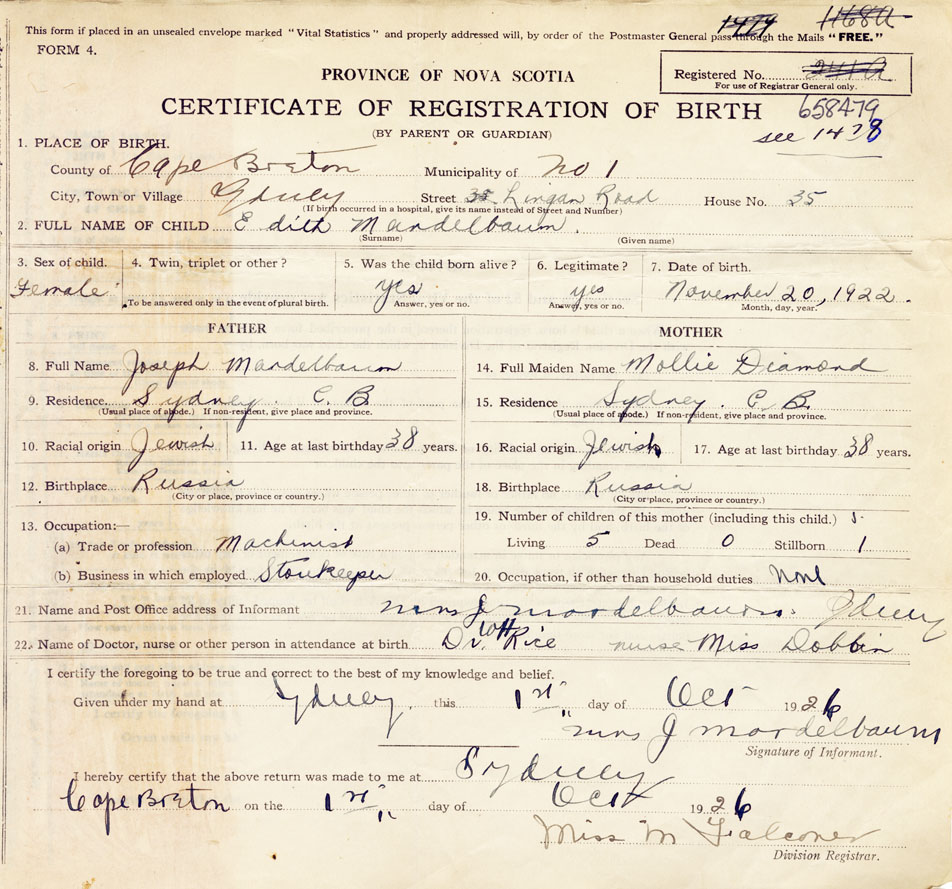 1479 1168A
This form if placed in an unsealed envelope marked "Vital Statistics" and properly addressed will, by order of the Postmaster General pass through the Mails "FREE."
FORM 4.
PROVINCE OF NOVA SCOTIA
Registered No.
For use of Registrar General only.
CERTIFICATE OF REGISTRATION OF BIRTH 658479
(BY PARENT OR GUARDIAN) see 1478
1. PLACE OF BIRTH.
County of Cape Breton Municipality of No 1
City, Town or Village Sydney Street 35 Lingan Road House No. 35
(If birth occurred in a hospital, give its name instead of Street and Number)
2. FULL NAME OF CHILD Edith Mandelbaum.
(Surname) (Given name)
3. Sex of child. 4. Twin, triplet or other? 5. Was the child born alive? 6. Legitimate? 7. Date of birth.
Female yes yes November 20, 1922.
To be answered only in the event of plural birth. Answer, yes or no. Answer, yes or no. Month, day, year.
FATHER MOTHER
8. Full Name Joseph Mandelbaum 14. Full Maiden Name Mollie Diamond
9. Residence Sydney. C. B. 15. Residence Sydney. C. B.
(Usual place of abode.) If non-resident, give place and province. (Usual place of abode) If non-resident, give place and province.
10. Racial origin Jewish 11. Age at last birthday 38 years. 16. Racial origin Jewish 17. Age at last birthday 38 years.
12. Birthplace Russia 18. Birthplace Russia
(City or place, province or country.) (City or place, province or country.)
13. Occupation:— 19. Number of children of this mother (including this child.)
(a) Trade or profession Machinist Living 5 Dead 0 Stillborn 1
(b) Business in which employed Storekeeper 20. Occupation, if other than household duties None
21. Name and Post Office address of Informant Mrs J Mandelbaum. Sydney
22. Name of Doctor, nurse or other person in attendance at birth Dr. Rice nurse Miss Dobbin
I certify the foregoing to be true and correct to the best of my knowledge and belief.
Given under my hand at Sydney. this 1st day of Oct 1926
Mrs J Mandelbaum
Signature of Informant.
I hereby certify that the above return was made to me at Sydney
Cape Breton on the 1st day of Oct 1926
Miss M Falconer
Division Registrar.